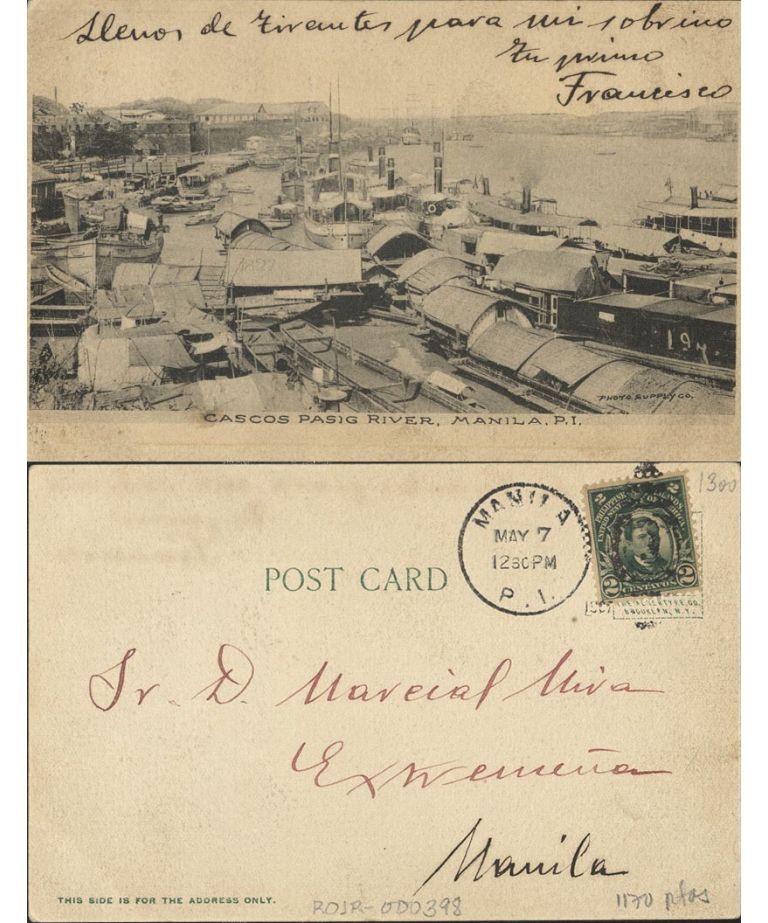 Llenos de Tirantes para mi sobrino
tu primo
Francisco
197
PHOTO SUPPLY CO.
CASCOS PASIG RIVER, MANILA, P.I.
1300
MANILA
MAY 7
1230PM
P. I.
2 2
PHILIPPINE ISLANDS
UNITED STATES OF AMERICA
2 CENTAVOS 2
POST CARD
1907
THE ALBERTYPE CO.
BROOKLYN, N.Y.
Sr. D. Marcial Miva
Extremeña
Manila
THIS SIDE IS FOR THE ADDRESS ONLY.
ROJR-000398
1170 ptas